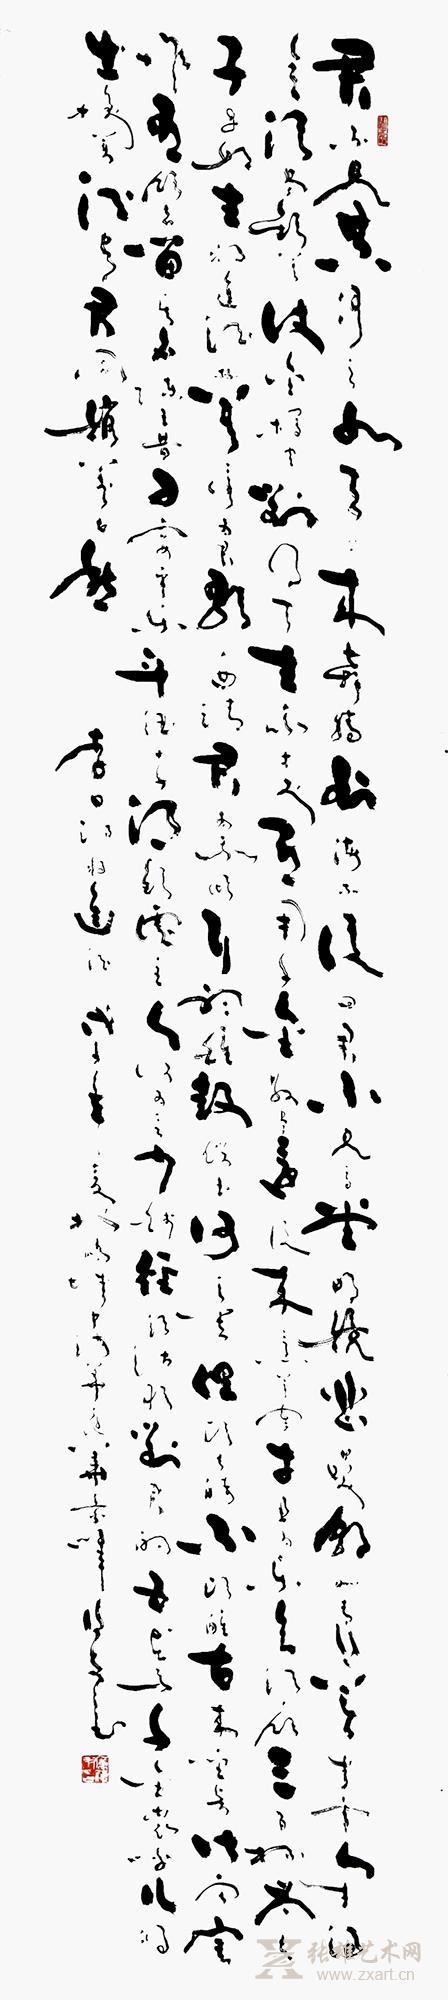 君不見黃河之水天上來奔流到海不復回君不見高堂明鏡悲白髮朝如青絲暮成雪人生得
意須盡歡莫使金樽空對月天生我材必有用千金散盡還復來烹羊宰牛且為樂會須一飲三百杯岑夫
子丹丘生將進酒杯莫停與君歌一曲請君為我傾耳聽鐘鼓饌玉何足貴但願長醉不願醒古來聖賢皆寂寞
惟有飲者留其名陳王昔時宴平樂斗酒十千恣歡謔主人何為言少錢徑須沽取對君酌五花馬千金裘呼兒將
出換美酒與君同銷萬古愁 李白詩將進酒 戊子年
张雄艺术网
www.zxart.cn